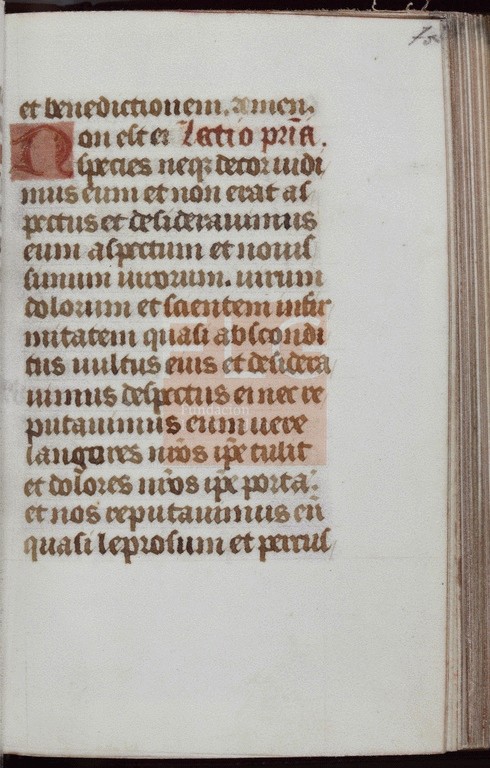 et benedictionem. amen.
Non est ei Lectio pria.
species neqꝫ decor uidi
mus eum et non erat as
pectus et desiderauimus
eum aspectum et nouis
simum uirorum. uirum
dolorum et scientem infir
mitatem quasi abscondi
tus uultus eius et desidera
uimus despectus ei nec re
putauimus eum uere
langores nr̄os ip̄e tulit
et dolores nr̄os ip̄e porta.
et nos reputauimus eū
quasi leprosum et percus
Fundación